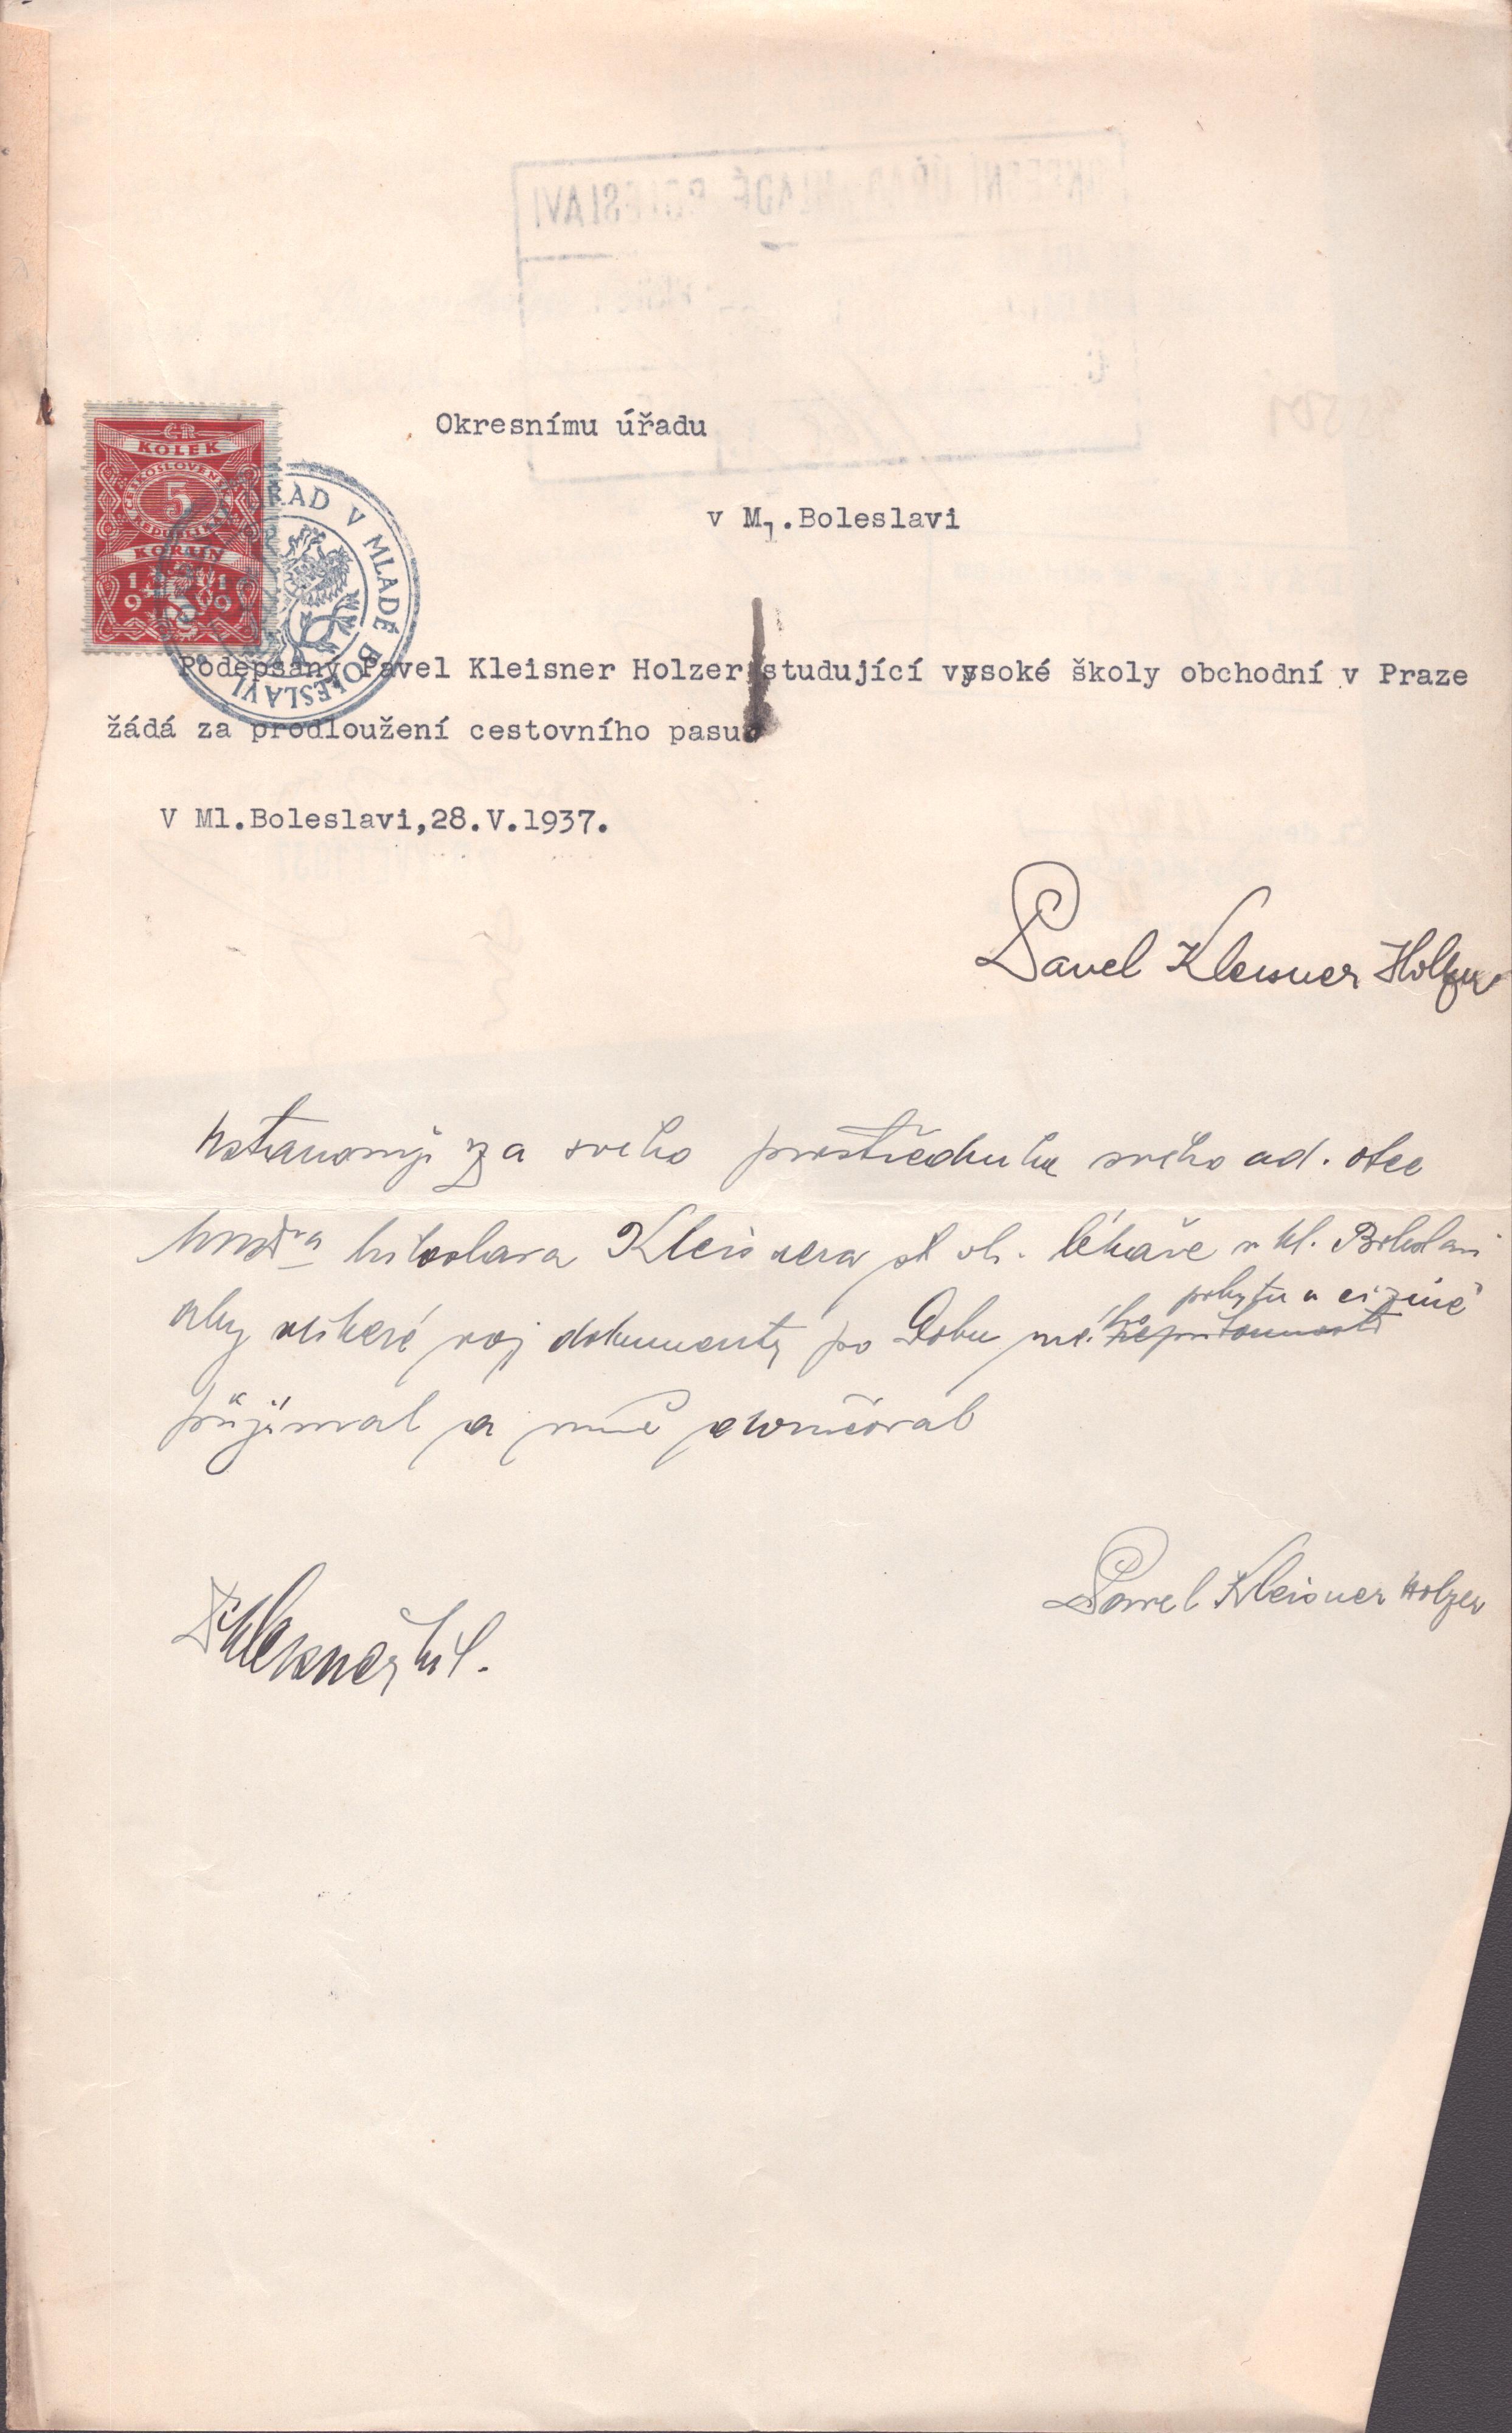 ČR
KOLEK
5
KORUN
1919
OKRESNÍ ÚŘAD V MLADÉ BOLESLAVI
Okresnímu úřadu
v Ml.Boleslavi
Podepsaný Pavel Kleisner Holzer studující vysoké školy obchodní v Praze
žádá za prodloužení cestovního pasu
V Ml.Boleslavi,28.V.1937.
Pavel Kleisner Holzer
Ustanovuji za svého prostředníka svého ad. otce
Miloslava Kleisnera ob. lékaře v Ml. Boleslavi
pobytu v cizině
aby veškeré voj dokumenty po dobu mého nepřítomnosti
přijímal a mně doručoval
Pavel Kleisner Holzer
Kleisner Mil.